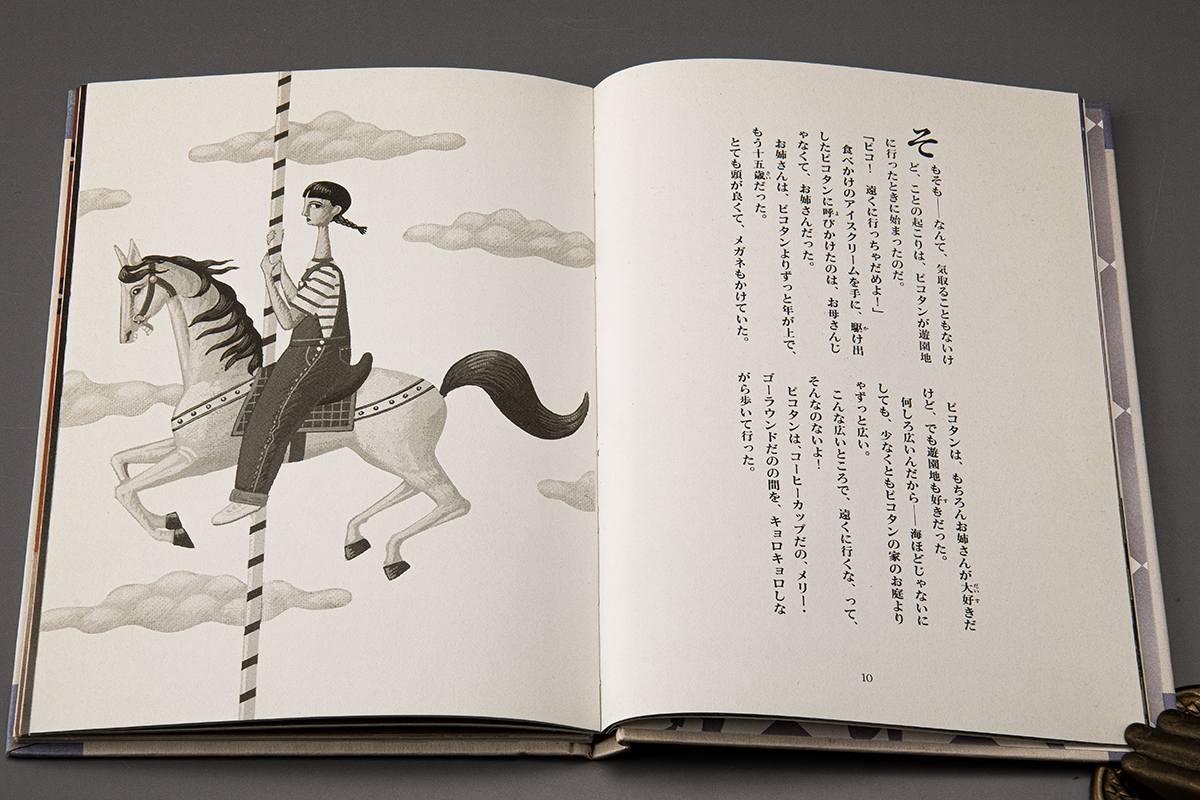 そもそも――なんて、気取ることもないけ
ど、ことの起こりは、ピコタンが遊園地
に行ったときに始まったのだ。
「ピコ！　遠くに行っちゃだめよ！」
食べかけのアイスクリームを手に、駆け出
したピコタンに呼びかけたのは、お母さんじ
ゃなくて、お姉さんだった。
お姉さんは、ピコタンよりずっと年が上で、
もう十五歳だった。
とても頭が良くて、メガネもかけていた。
ピコタンは、もちろんお姉さんが大好きだ
けど、でも遊園地も好きだった。
何しろ広いんだから――海ほどじゃないに
しても、少なくともピコタンの家のお庭より
ゃずっと広い。
こんな広いところで、遠くに行くな、って、
そんなのないよ！
ピコタンは、コーヒーカップだの、メリー・
ゴーラウンドだのの間を、キョロキョロしな
がら歩いて行った。
10